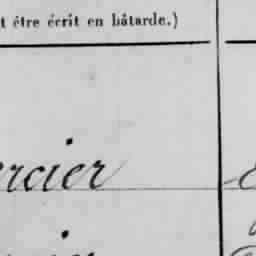 t être écrit en bâtarde.)
ercier